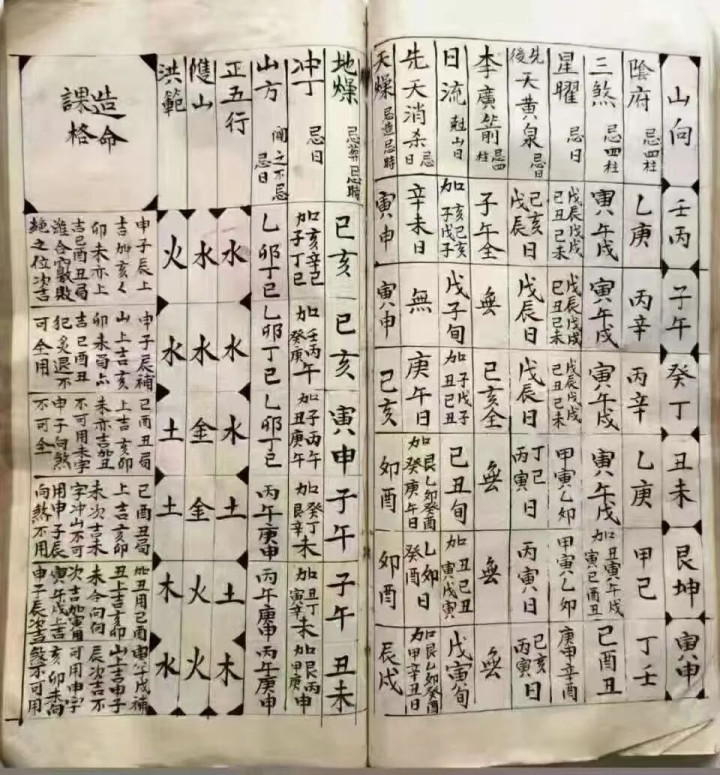 山向
陰府 忌四柱
三煞 忌四柱
星曜 忌日
先後天黄泉 忌日
李廣箭 忌四柱
日流 尅山日
先天消杀日 忌
天燥 忌造忌時
壬丙
乙庚
寅午戌
戊辰戊戌
己丑己未
己亥日
戊辰
子午全
如亥己亥
子戊子
辛未日
寅申
子午
丙辛
寅午戌
戊辰戊戌
己丑己未
戊辰日
無
戊子旬
無
寅申
癸丁
丙辛
寅午戌
戊辰戊戌
己丑己未
戊辰日
己亥全
如子戊子
丑己丑
庚午日
己亥
丑未
乙庚
寅午戌
甲寅乙卯
丁巳日
丙寅
無
己丑旬
如艮乙卯癸酉
癸庚午日
卯酉
艮坤
甲己
如丑寅午戌
寅己酉丑
甲寅乙卯
丙寅日
無
如丑己丑
寅戊寅
乙卯日
癸酉
卯酉
寅申
丁壬
己酉丑
庚申辛酉
己亥日
丙寅
無
戊寅旬
如艮乙卯癸酉
甲辛丑日
辰戌
地燥 忌葬忌時
冲丁 忌日
山方 忌日
正五行
雙山
洪範
造命
課格
己亥
如亥辛巳
子丁巳
乙卯丁巳
水
水
火
申子辰上
吉如亥
卯未亦上
吉己酉丑局
己亥
如壬丙午
癸庚
乙卯丁巳
水
水
水
申子辰補
山上吉亥
吉己酉丑
可全用
寅申
如子丙午
丑庚午
乙卯丁巳
水
金
土
己酉丑局
上吉亥卯
未亦吉如丑
不可用未字
申子向煞
不可全
子午
如癸丁未
艮辛
丙午庚申
土
金
土
己酉丑局
上吉亥卯
未次吉未
字冲山不可
用申子辰
向煞不用
子午
如丑丁未
寅辛
丙午庚申
土
火
木
如丑用己酉
丑上吉亥卯
次吉如寅用
寅午戌上吉
申子辰次吉
丑未
如艮丙申
甲庚
丙午庚申
木
火
水
寅午戌補
山上吉申子
辰次吉不
可用申字
亥卯未向
煞不可用